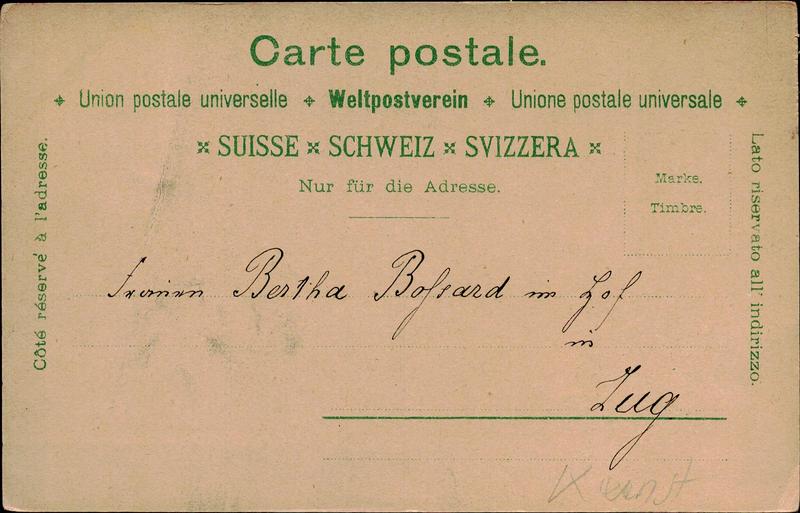 Carte postale.
Union postale universelle Weltpostverein Unione postale universale
SUISSE SCHWEIZ SVIZZERA
Nur für die Adresse.
Marke.
Timbre.
Côté réservé à l'adresse.
Lato riservato all' indirizzo.
Bertha Bossard im Hof
in
Zug